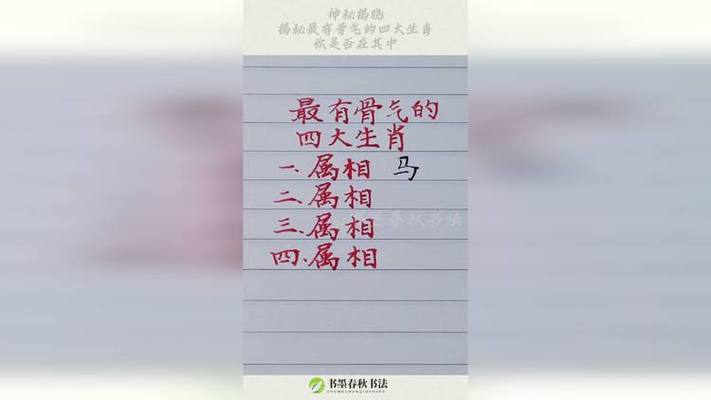 神秘揭晓
揭秘最有骨气的四大生肖
你是否在其中
最有骨气的
四大生肖
一、属相 马
二、属相
三、属相
四、属相
春秋书法
书墨春秋书法
SHUMOCHUNQIUSHUFA